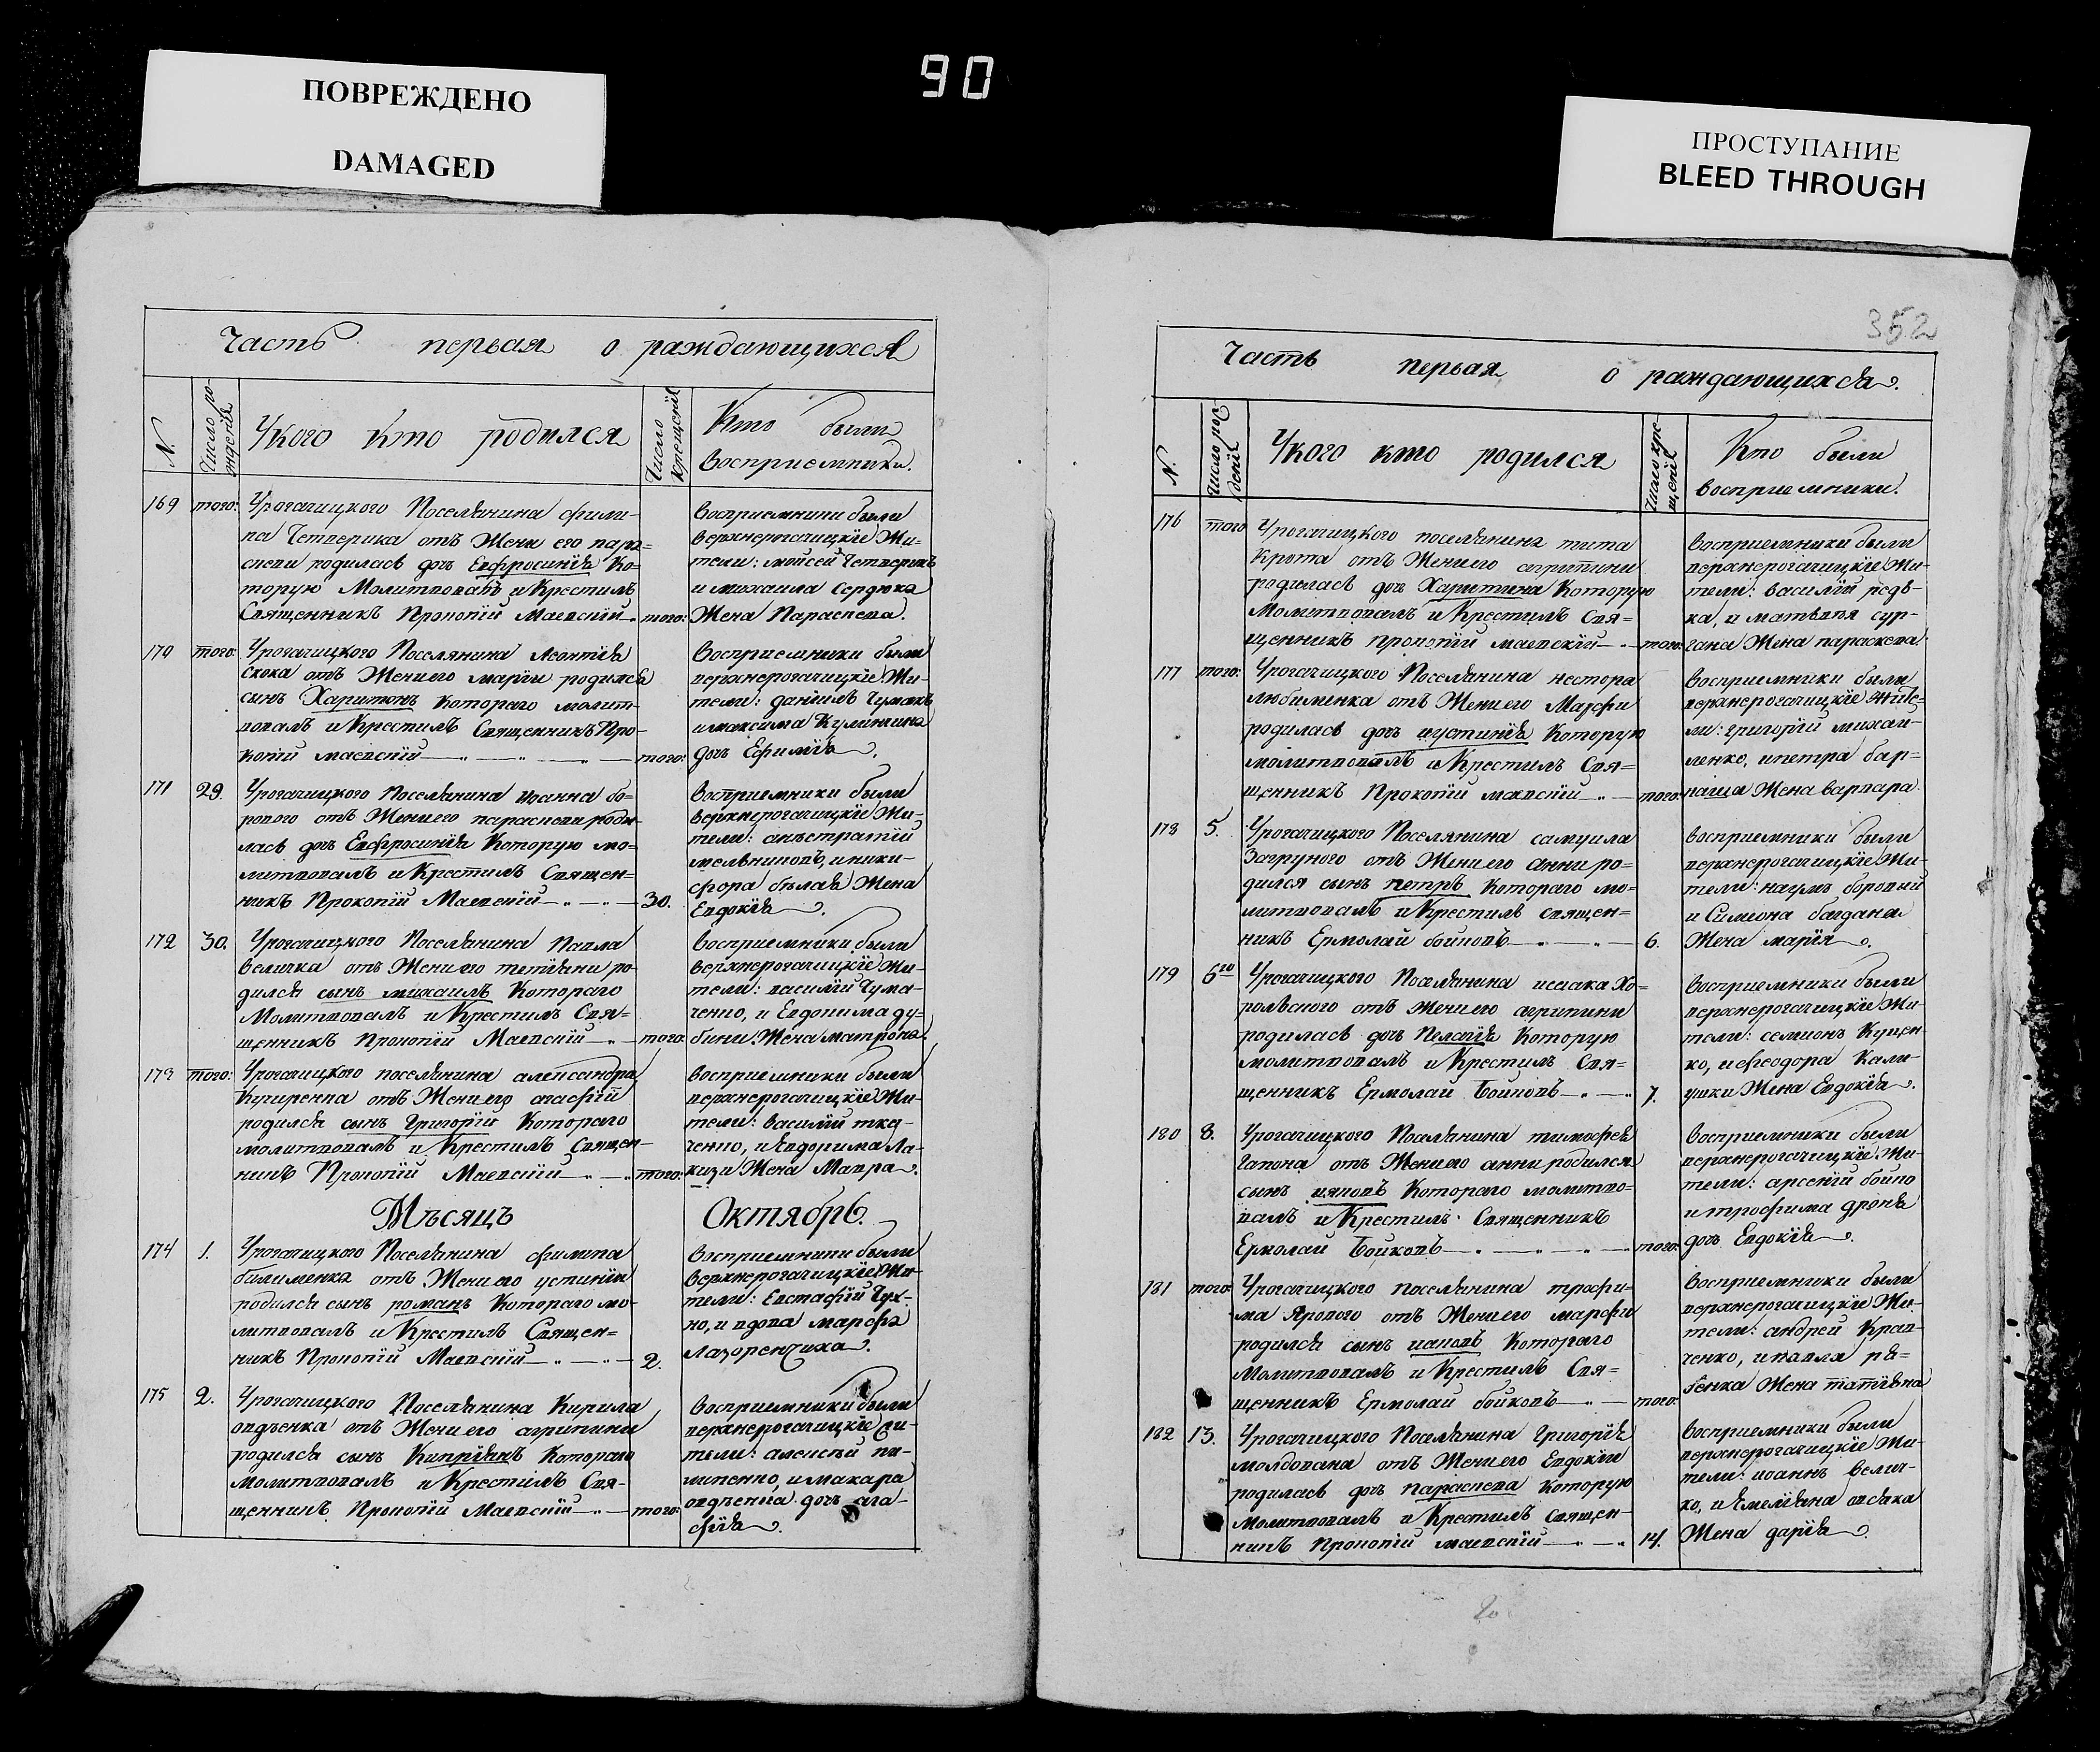 ПОВРЕЖДЕНО
DAMAGED
90
ПРОСТУПАНИЕ
BLEED THROUGH
Часть первая о раждающихся
N.
Число ро-
жденія
Укого кто родился
Число
крещенія
Кто были
восприемники.
169 того: Урогачицкого Поселянина фили-
па Четверика отъ Жени его пара=
скеви родилась дочь Евфросинія Ко-
торую Молитвовалъ и Крестилъ
Священникъ Прокопій Маевскій того:
восприемники были
верхнерогачицкіе Жи-
тели: мойсей Четверикъ
и михаила Сердюка
Жена Параскева.
170 того: Урогачицкого Поселянина Леонтія
скока отъ Жени его марѳи родился
сынъ Харитонъ которого молит-
вовалъ и Крестилъ Священникъ Про-
копій маевскій того:
восприемники были
верхнерогачицкіе Жи-
тели: даніилъ Чумакъ
и максима Кулинича
дочь Ефимія.
171 29. Урогачицкого Поселянина Иоанна бо=
рового отъ Жени его параскеви роди-
лась дочь Евфросинія Которую мо-
литвовалъ и Крестилъ Священ=
никъ Прокопій Маевскій 30.
восприемники были
верхнерогачицкіе Жи-
тели: евстратій
мельниковъ, и ники-
фора бѣлая Жена
Евдокія.
172 30. Урогачицкого Поселянина Павла
величка отъ Жени его тетіяни ро-
дился сынъ михаилъ Которого
Молитвовалъ и Крестилъ Свя=
щенникъ Прокопій Маевскій того:
восприемники были
верхнерогачицкіе Жи-
тели: василій Чума-
ченко, и Евдокима ду-
бини Жена матрона.
173 того: Урогачицкого поселянина александра
Кучиренка отъ Жени его агафіи
родился сынъ Григорій Которого
молитвовалъ и Крестилъ Священ-
никъ Прокопій Маевскій того:
восприемники были
верхнерогачицкіе Жи-
тели: василій тка-
ченко, и Евдокима Ла-
кизи Жена Мавра.
Мѣсяцъ Октябрь.
174 1. Урогачицкого Поселянина филипа
билименка отъ Жени его устиніи
родился сынъ романъ Которого мо-
литвовалъ и Крестилъ Священ=
никъ Прокопій Маевскій 2.
восприемники были
верхнерогачицкіе Жи-
тели: Евстафій Чух-
но, и вдова марфа
Лазоренчиха.
175 2. Урогачицкого Поселянина Кирила
овдѣенка отъ Жени его агрипини
родился сынъ Кипріянъ Которого
Молитвовалъ и Крестилъ Свя-
щенникъ Прокопій Маевскій того:
восприемники были
верхнерогачицкіе Жи-
тели: алексѣй пи-
липенко, и макара
овдѣенка дочь ага-
фія.
352
Часть первая о раждающихся.
N.
Число рож-
денія
Укого кто родился
Число кре-
щенія
Кто были
восприемники.
176 того Урогачицкого поселянина тита
Крота отъ Жени его агрипини
родилась дочь Харитина Которую
Молитвовалъ и Крестилъ Свя=
щенникъ прокопій маевскій того:
восприемники были
верхнерогачицкіе Жи-
тели: василій редь-
ка, и матвѣя сур-
гана Жена параскева.
177 того: Урогачицкого Поселянина нестора
любименка отъ Жени его Марфи
родилась дочь иустинія Которую
молитвовалъ и Крестилъ Свя=
щенникъ Прокопій маевскій того:
восприемники были
верхнерогачицкіе жите-
ли: григорій михай-
ленко, и петра бар-
наша Жена варвара.
178 5. Урогачицкого Поселянина самуила
Загруного отъ Жени его анни ро=
дился сынъ петръ Которого мо-
литвовалъ и Крестилъ священ=
никъ Ермолай бойковъ 6.
восприемники были
верхнерогачицкіе Жи-
тели: наумъ боровий
и Симеона багдана
Жена марія.
179 6го Урогачицкого Поселянина исаака Хо=
ролѣского отъ Жени его агрипини
родилась дочь Пелагія Которую
молитвовалъ и Крестилъ Свя-
щенникъ Ермолай Бойковъ 7.
восприемники были
верхнерогачицкіе Жи-
тели: семионъ Куцен
ко, и феодора Кали-
ушки Жена Евдокія.
180 8. Урогачицкого Поселянина тимофея
гапона отъ Жени его анни родился
сынъ ияковъ Которого молитво=
валъ и Крестилъ Священникъ
Ермолай Бойковъ того:
восприемники были
верхнерогачицкіе Жи-
тели: арсеній бойко
и трофима дроня
дочь Евдокія.
181 того: Урогачицкого поселянина трофи-
ма Ярового отъ Жени его марфи
родился сынъ иаковъ Которого
Молитвовалъ и Крестилъ Свя-
щенникъ Ермолай бойковъ того:
восприемники были
верхнерогачицкіе Жи-
тели: андрей Крав-
ченко, и павла ря=
Жена татіяна
182 13. Урогачицкого Поселянина Григорія
молдована отъ Жени его Евдокіи
родилась дочь параскева Которую
Молитвовалъ и Крестилъ священ-
никъ Прокопій маевскій 14.
восприемники были
верхнерогачицкіе Жи-
тели: иоаннъ велич-
ко, и Емеліяна овсяка
Жена дарія.